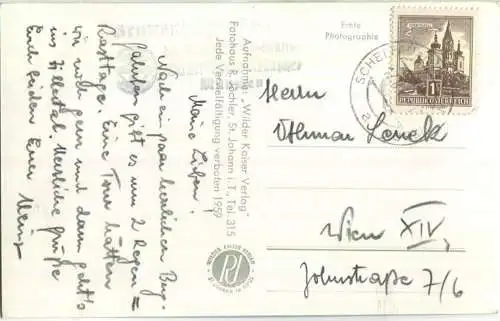 Meine Lieben!
Nach ein paar herrlichen Berg-
fahrten gibt es nun 2 Regen =
Rasttage. Eine Tour hätten
wir noch gern und dann geht's
ins Zillertal. Herzliche Grüße
Euch beiden Euer
Heinz
Aufnahme: „Wilder Kaiser Verlag"
Fotohaus R. Jöchler, St. Johann i. T., Tel. 315
Jede Vervielfältigung verboten 1959
WILDER KAISER VERLAG
ST. JOHANN IN TIROL
Echte
Photographie
1S
REPUBLIK ÖSTERREICH
SCHEFF
Herrn
Othmar
Wien XIV,
7/6